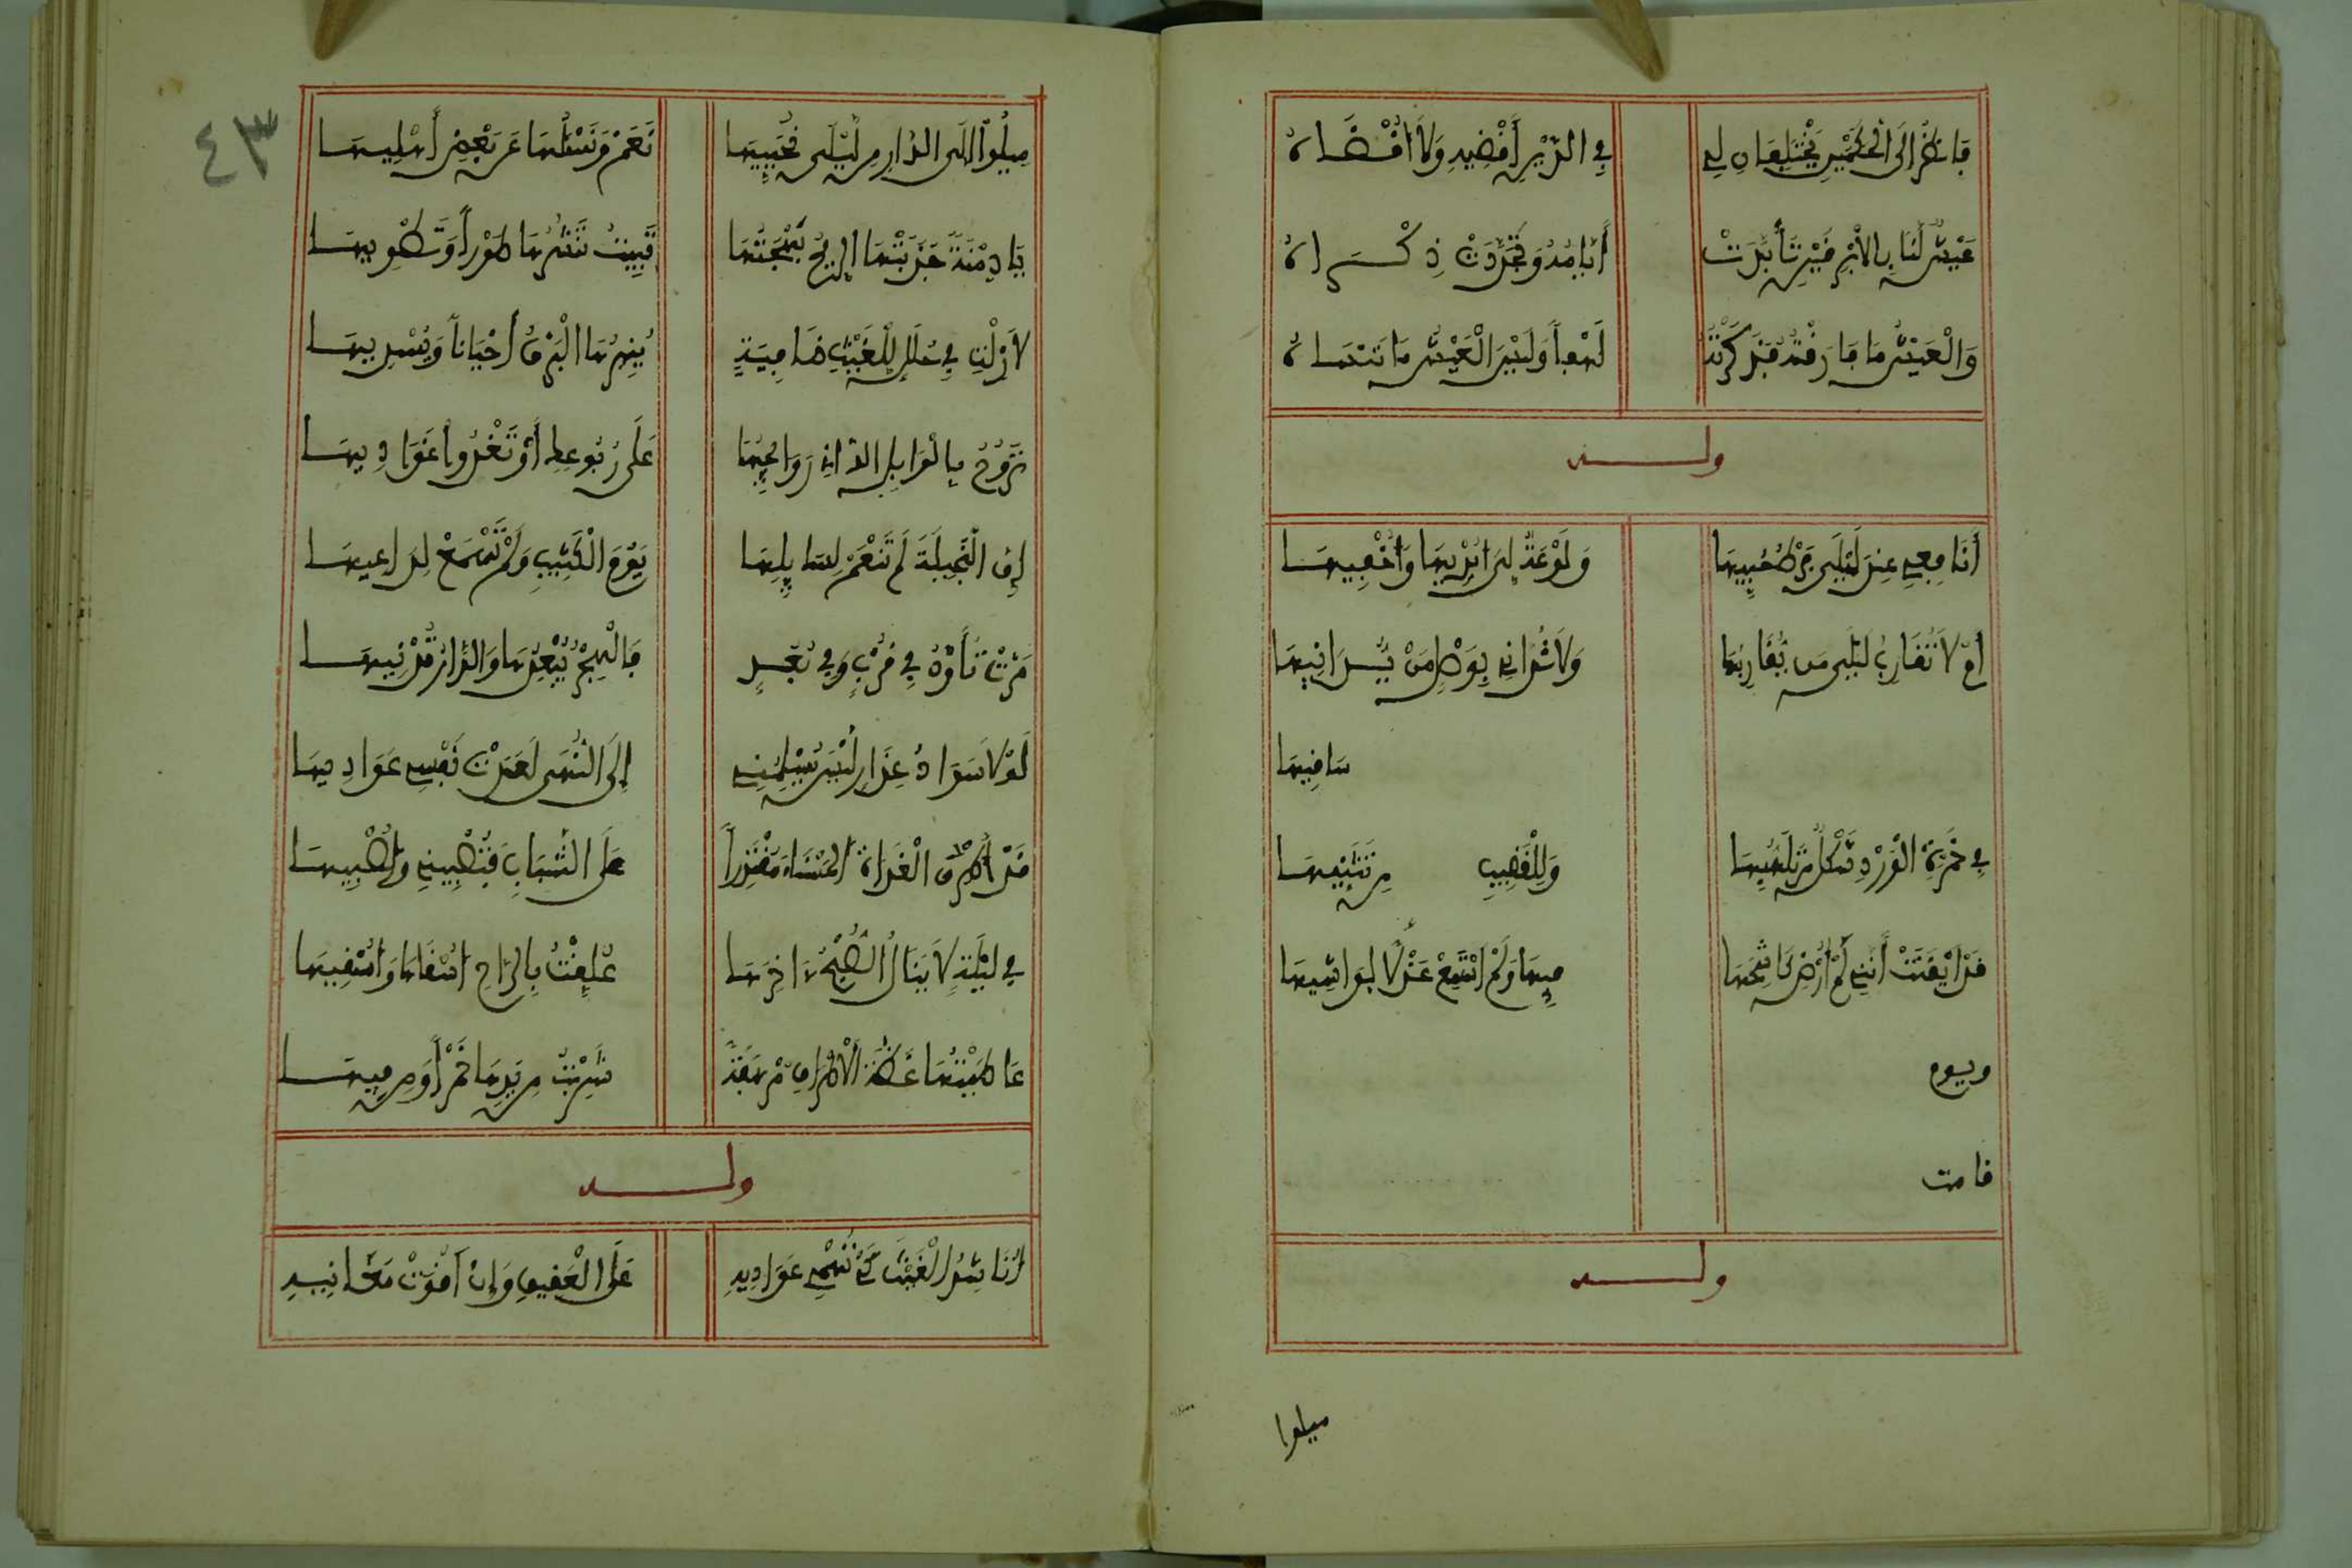 فَانْظُرْ إِلَى الحُكْمَيْنِ يَخْتَلِفَانِ لِي فِي الدَّيْنِ أَقْضِيهِ وَلَا أُقْضَاهُ
عَيْشٌ لَنَا بِالأَبْرَقَيْنِ تَأَبَّدَتْ أَيَّامُهُ وَتَجَدَّدَتْ ذِكْرَاهُ
وَالْعَيْشُ مَا فَارَقْتُهُ فَذَكَرْتَهُ لَهْفاً وَلَيْسَ الْعَيْشُ مَا تَنْسَاهُ
ولـــه
أَنَافِعِي عِنْدَ لَيْلَى فَرْطُ حُبِّيهَا وَلَوْعَةٌ لِي أُبْدِيهَا وَأُخْفِيهَا
أَمْ لَا تُقَارِبُ لَيْلَى مَن يُقَارِبُهَا وَلَا تُدَانِي بِوَصْلٍ مَنْ يُدَانِيهَا
ساقيها
فِي حُمْرَةِ الْوَرْدِ شَكْلٌ مِنْ تَلَهُّبِهَا وَلِلْقَضِيبِ مِنْ تَثَنِّيهَا
قَدْ أَيْقَنَتْ أَنَّنِي لَمْ أُرْضِ كَاشِحَهَا فِيهَا وَلَمْ أَسْتَمِعْ عَذْلاً لِوَاشِيهَا
ويوم
قامت
ولـــه
ميلوا
٤٣
مِيلُوا إِلَى الدَّارِ مِنْ لَيْلَى نُحَيِّيهَا نَعَمْ وَنَسْئَلُهَا عَنْ بَعْضِ أَهْلِيهَا
يَا دِمْنَةً جَاذَبَتْهَا الرِّيحُ بَهْجَتَهَا تَبِيتُ تَنْشُرُهَا طَوْراً وَتَطْوِيهَا
لَا زِلْتِ فِي حُلَلٍ لِلْغَيْثِ ضَافِيَةٍ يُنِيرُهَا الْبَرْقُ أَحْيَاناً وَيُسْدِيهَا
تَرُوحُ بِالْوَابِلِ الدَّانِي رَوَائِحُهَا عَلَى رُبُوعِكِ أَوْ تَغْدُوا غَوَادِيهَا
إِنَّ الْبَخِيلَةَ لَمْ تَنْعَمْ لِسَايِلِهَا يَوْمَ الْكَثِيبِ وَلَمْ تَسْمَعْ لِدَاعِيهَا
مَرَّتْ تَأَوَّدُ فِي قُرْبٍ وَفِي بُعُدٍ فَالْهَجْرُ يُبْعِدُهَا وَالدَّارُ تُدْنِيهَا
لَوْلَا سَوَادُ عِذَارٍ لَيْسَ يُسْلِمُنِي إِلَى النُّهَى لَعَدَتْ نَفْسِي عَوَادِيهَا
قَدْ أَطْرُقُ الْغَادَةَ الحَسْنَاءَ مُقْتَدِراً عَلَى الشَّبَابِ فَتُصْبِينِي وَأُصْبِيهَا
فِي لَيْلَةٍ لَا يَنَالُ الصُّبْحُ ءَاخِرَهَا عُلِّقْتُ بِالرَّاحِ أُسْقَاهَا وَأَسْقِيهَا
عَاطَيْتُهَا غَضَّةَ الأَطْرَافِ مُرْهَفَةً شَرِبْتُ مِنْ يَدِهَا خَمْراً وَمِنْ فِيهَا
ولـــه
أُنَاشِدُ الْغَيْثَ كَيْ تَهْمِي غَوَادِيهِ عَلَى الْعَقِيقِ وَإِنْ أَقْوَتْ مَغَانِيهِ